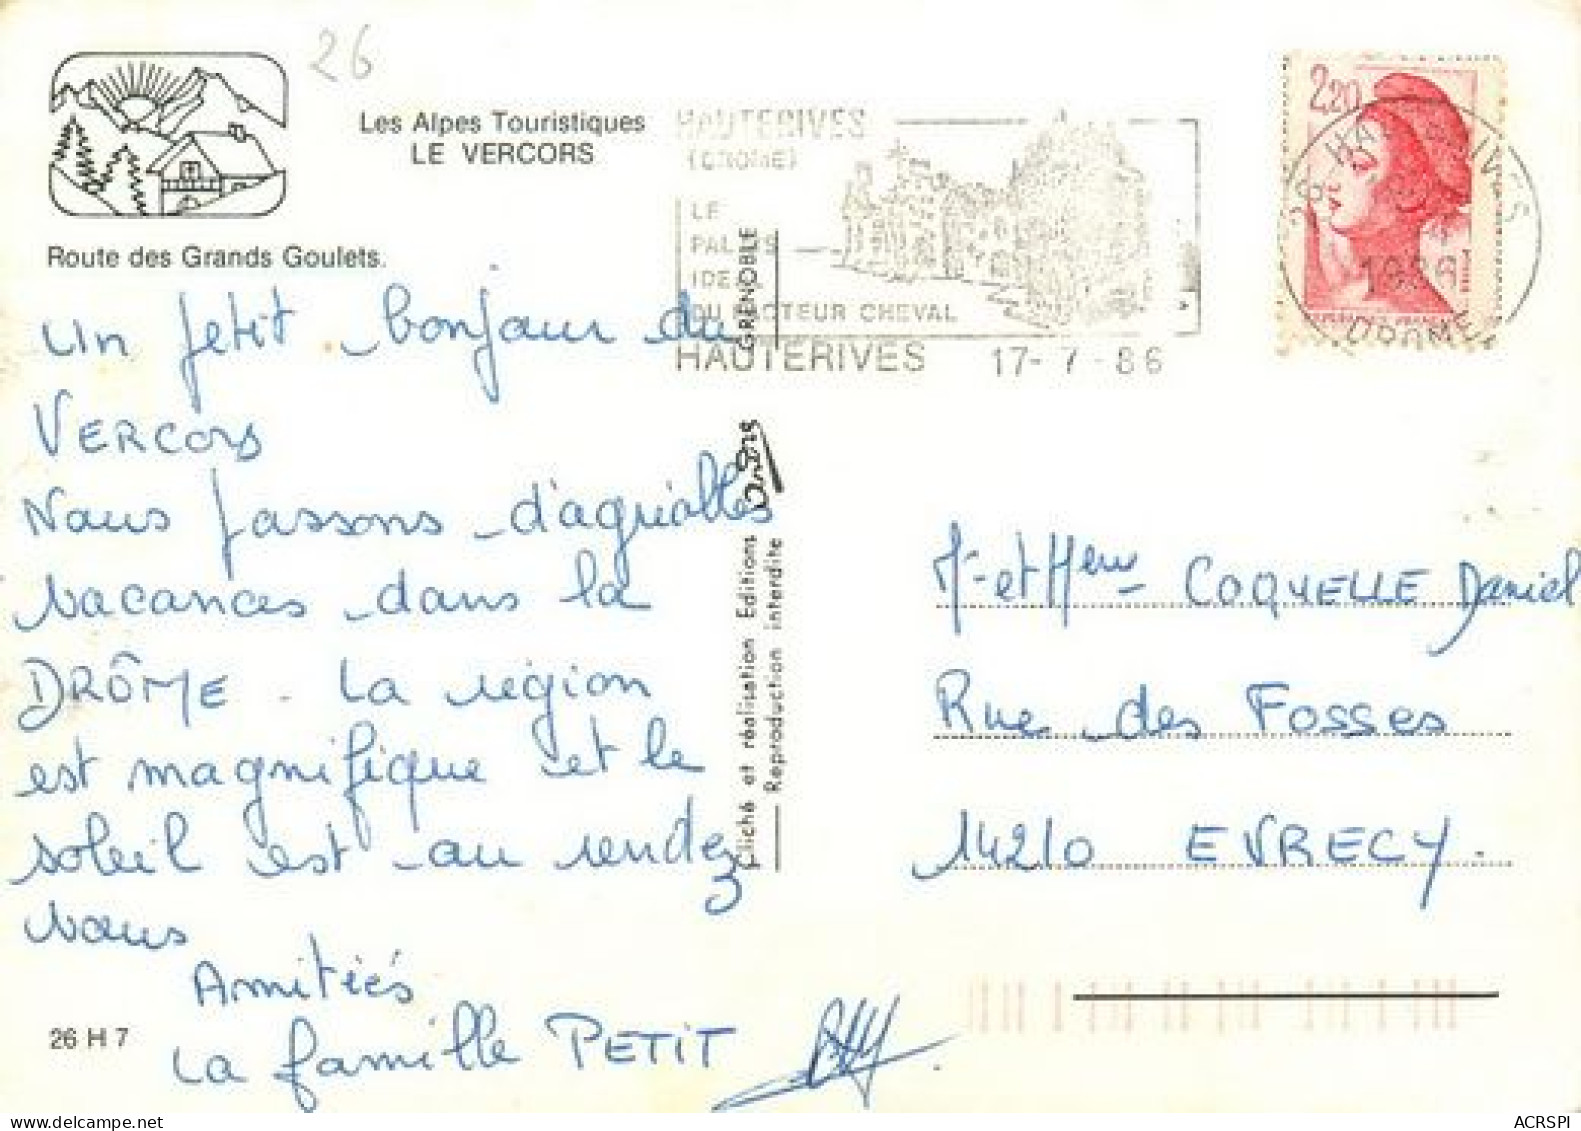 26
Les Alpes Touristiques
LE VERCORS
Route des Grands Goulets.
HAUTERIVES
(DROME)
LE
PALAIS
IDEAL
DU FACTEUR CHEVAL
HAUTERIVES 17-7-86
2,20
26 HAUTERIVES
1986
DROME
Un petit bonjour du
VERCORS
Nous passons d'agréables
vacances dans la
DRÔME - La région
est magnifique et le
soleil est au rendez
vous
Amitiés
La famille PETIT
26 H 7
GRENOBLE
Cliché et réalisation Editions
Reproduction interdite
Mr et Mme COQUELLE Daniel
Rue des Fosses
14210 EVRECY.
ACRSPI